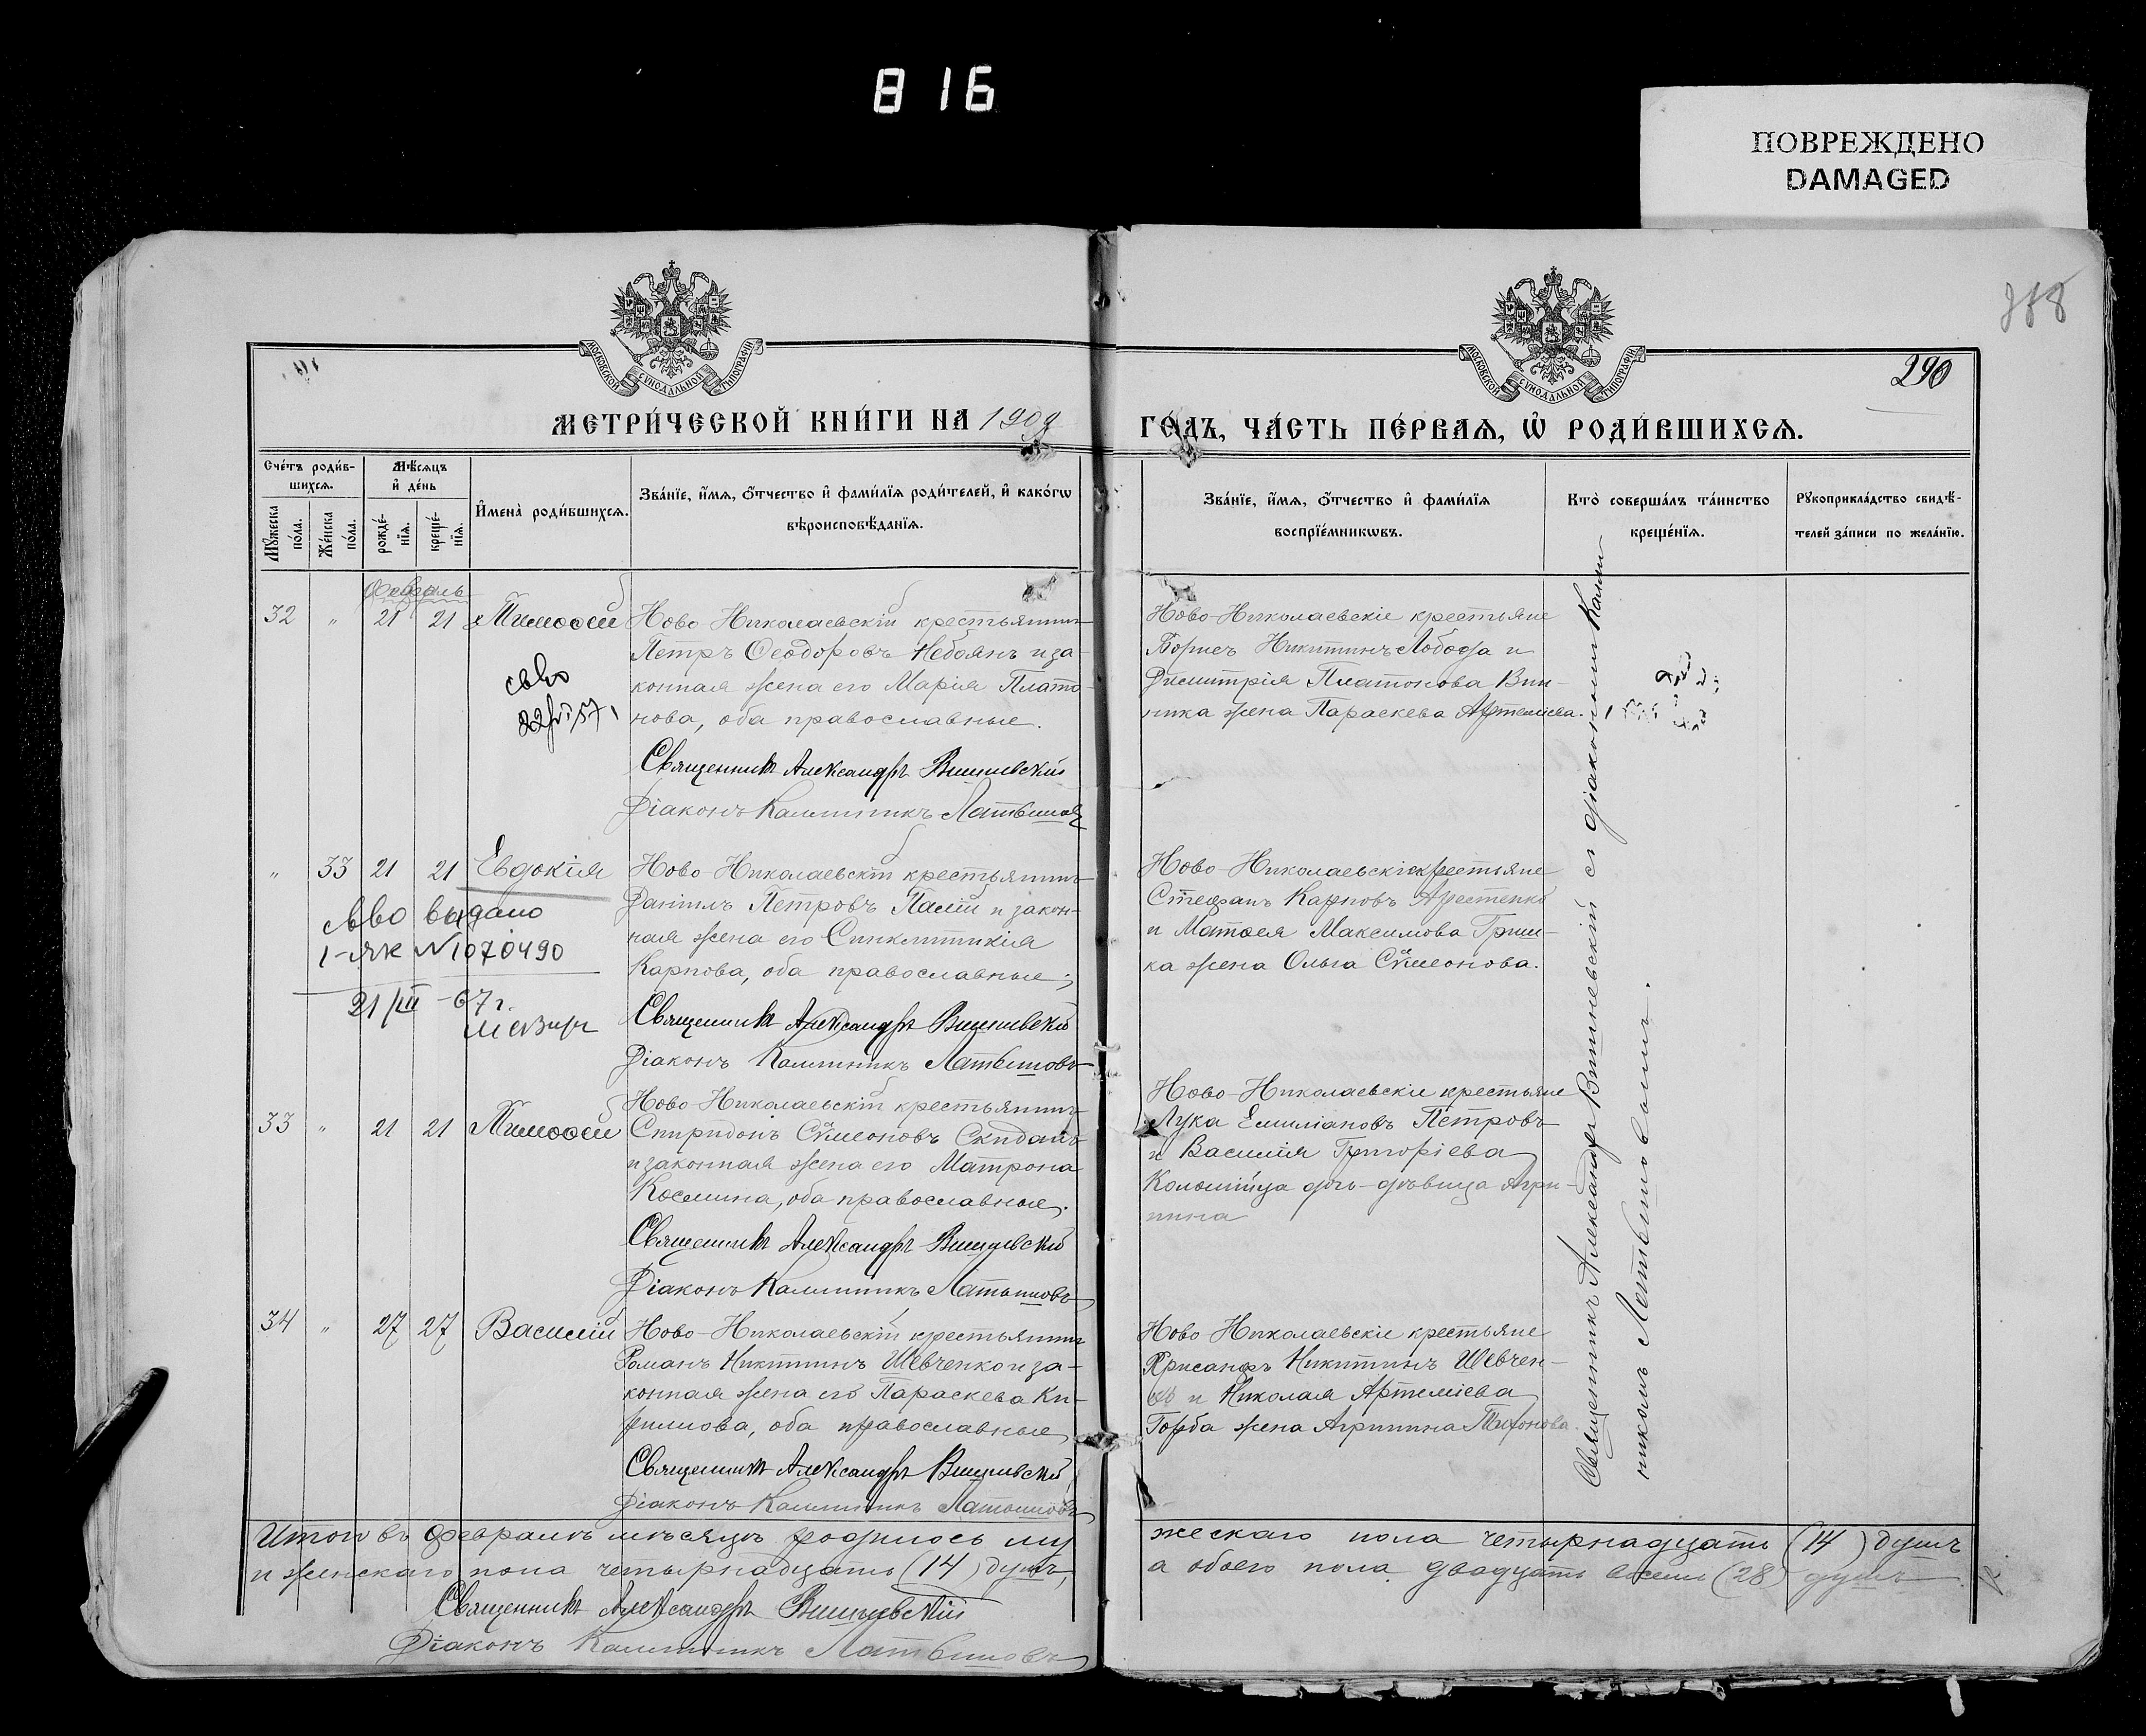 816
ПОВРЕЖДЕНО
DAMAGED
МОСКОВСКОЙ СУНОДАЛЬНОЙ ТИПОГРАФІИ
МОСКОВСКОЙ СУНОДАЛЬНОЙ ТИПОГРАФІИ
290
МЕТРИ́ЧЕСКОЙ КНИ́ГИ НА 1909
ГО́ДЪ, ЧА́СТЬ ПЕ́РВАѦ, Ѡ҆ РОДИ́ВШИХСѦ.
Сче́тъ роди́в-
шихсѧ.
Мѣ́сѧцъ
и҆ де́нь
Мꙋ́жеска
по́ла.
Же́нска
по́ла.
рожде́-
нїѧ.
креще́-
нїѧ.
И҆мена̀ роди́вшихсѧ.
Зва́нїе, и҆́мѧ, ѻ҆́тчество и҆ фами́лїѧ роди́телей, и҆ како́гѡ
вѣроисповѣ́данїѧ.
Зва́нїе, и҆́мѧ, ѻ҆́тчество и҆ фами́лїѧ
воспрїе́мникѡвъ.
Кто̀ соверша́лъ та́инство
креще́нїѧ.
Рꙋкоприкла́дство свидѣ́-
телей за́писи по жела́нїю.
Февраль
32 " 21 21 Тимоѳей
Ново-Николаевскій крестьянинъ
Петръ Ѳеодоровъ Небоянъ и за-
конная жена его Марія Плато-
нова, оба православные.
Священникъ Александръ Вишневскій
Діаконъ Каллиникъ Латышовъ
Ново-Николаевскіе крестьяне
Борисъ Никитинъ Лобода и
Димитрія Платонова Вин-
ника жена Параскева Артеміева.
" 33 21 21 Евдокія
св-во выдано
1-ЯК №1070490
21/III-67 г.
Ново-Николаевскій крестьянинъ
Даніилъ Петровъ Палій и закон-
ная жена его Синклитикія
Карпова, оба православные;
Священникъ Александръ Вишневскій
Діаконъ Каллиникъ Латышовъ
Ново-Николаевскіе крестьяне
Стефанъ Карповъ
и Матѳея Максимова Гриш-
ка жена Ольга Сѵмеонова.
33 " 21 21 Тимоѳей
Ново-Николаевскій крестьянинъ
Спиридонъ Сѵмеоновъ Скиданъ
и законная жена его Матрона
Космина, оба православные.
Священникъ Александръ Вишневскій
Діаконъ Каллиникъ Латышовъ
Ново-Николаевскіе крестьяне
Лука Емиліановъ Петровъ
и Василія Григоріева
Коломійца дочь-дѣвица Агри-
пина
34 " 27 27 Василій
Ново-Николаевскій крестьянинъ
Романъ Никитинъ Шевченко и за-
конная жена его Параскева Ки-
риллова, оба православные
Священникъ Александръ Вишневскій
Діаконъ Каллиникъ Латышовъ
Ново-Николаевскіе крестьяне
Хрисанфъ Никитинъ Шевчен-
ко и Николая Артеміева
Горба жена Агрипина Тихонова.
Священникъ Александръ Вишневскій съ діакономъ Калли-
никомъ Латышовымъ.
Итого въ Февралѣ мѣсяцѣ родилось му
жескаго пола четырнадцать (14) душъ
и женскаго пола четырнадцать (14) душъ,
а обоего пола двадцать восемь (28) душъ
Священникъ Александръ Вишневскій
Діаконъ Каллиникъ Латышовъ